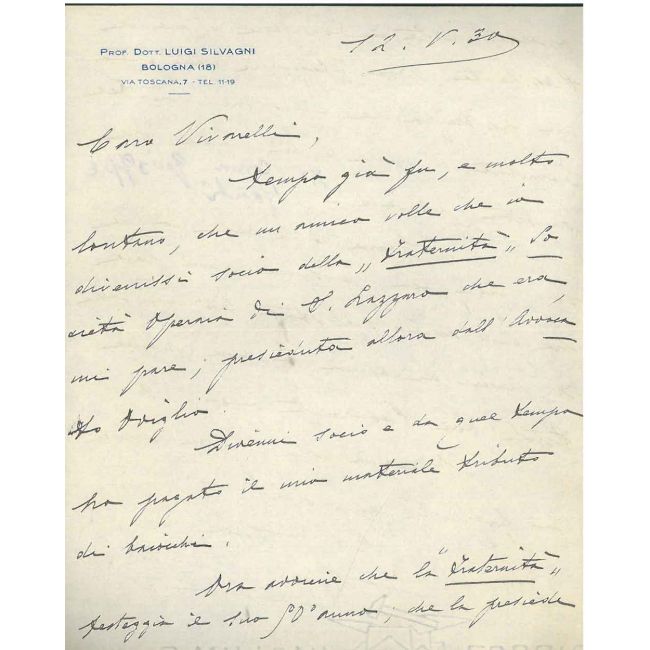 PROF. DOTT. LUIGI SILVAGNI
BOLOGNA (18)
VIA TOSCANA, 7 - TEL. 11-19
12. V. 30
Caro Vivarelli,
tempo già fu, e molto
lontano, che un amico volle che io
divenissi socio della „Fraternità„ So
cietà Operaia di S. Lazzaro che era,
mi pare, presieduta allora dall'Avvoca
to Oviglio.
Divenni socio e da quel tempo
ho pagato il mio materiale tributo
di baiocchi.
Ora avviene che la "Fraternità„
festeggia il suo 50° anno; che la presiede